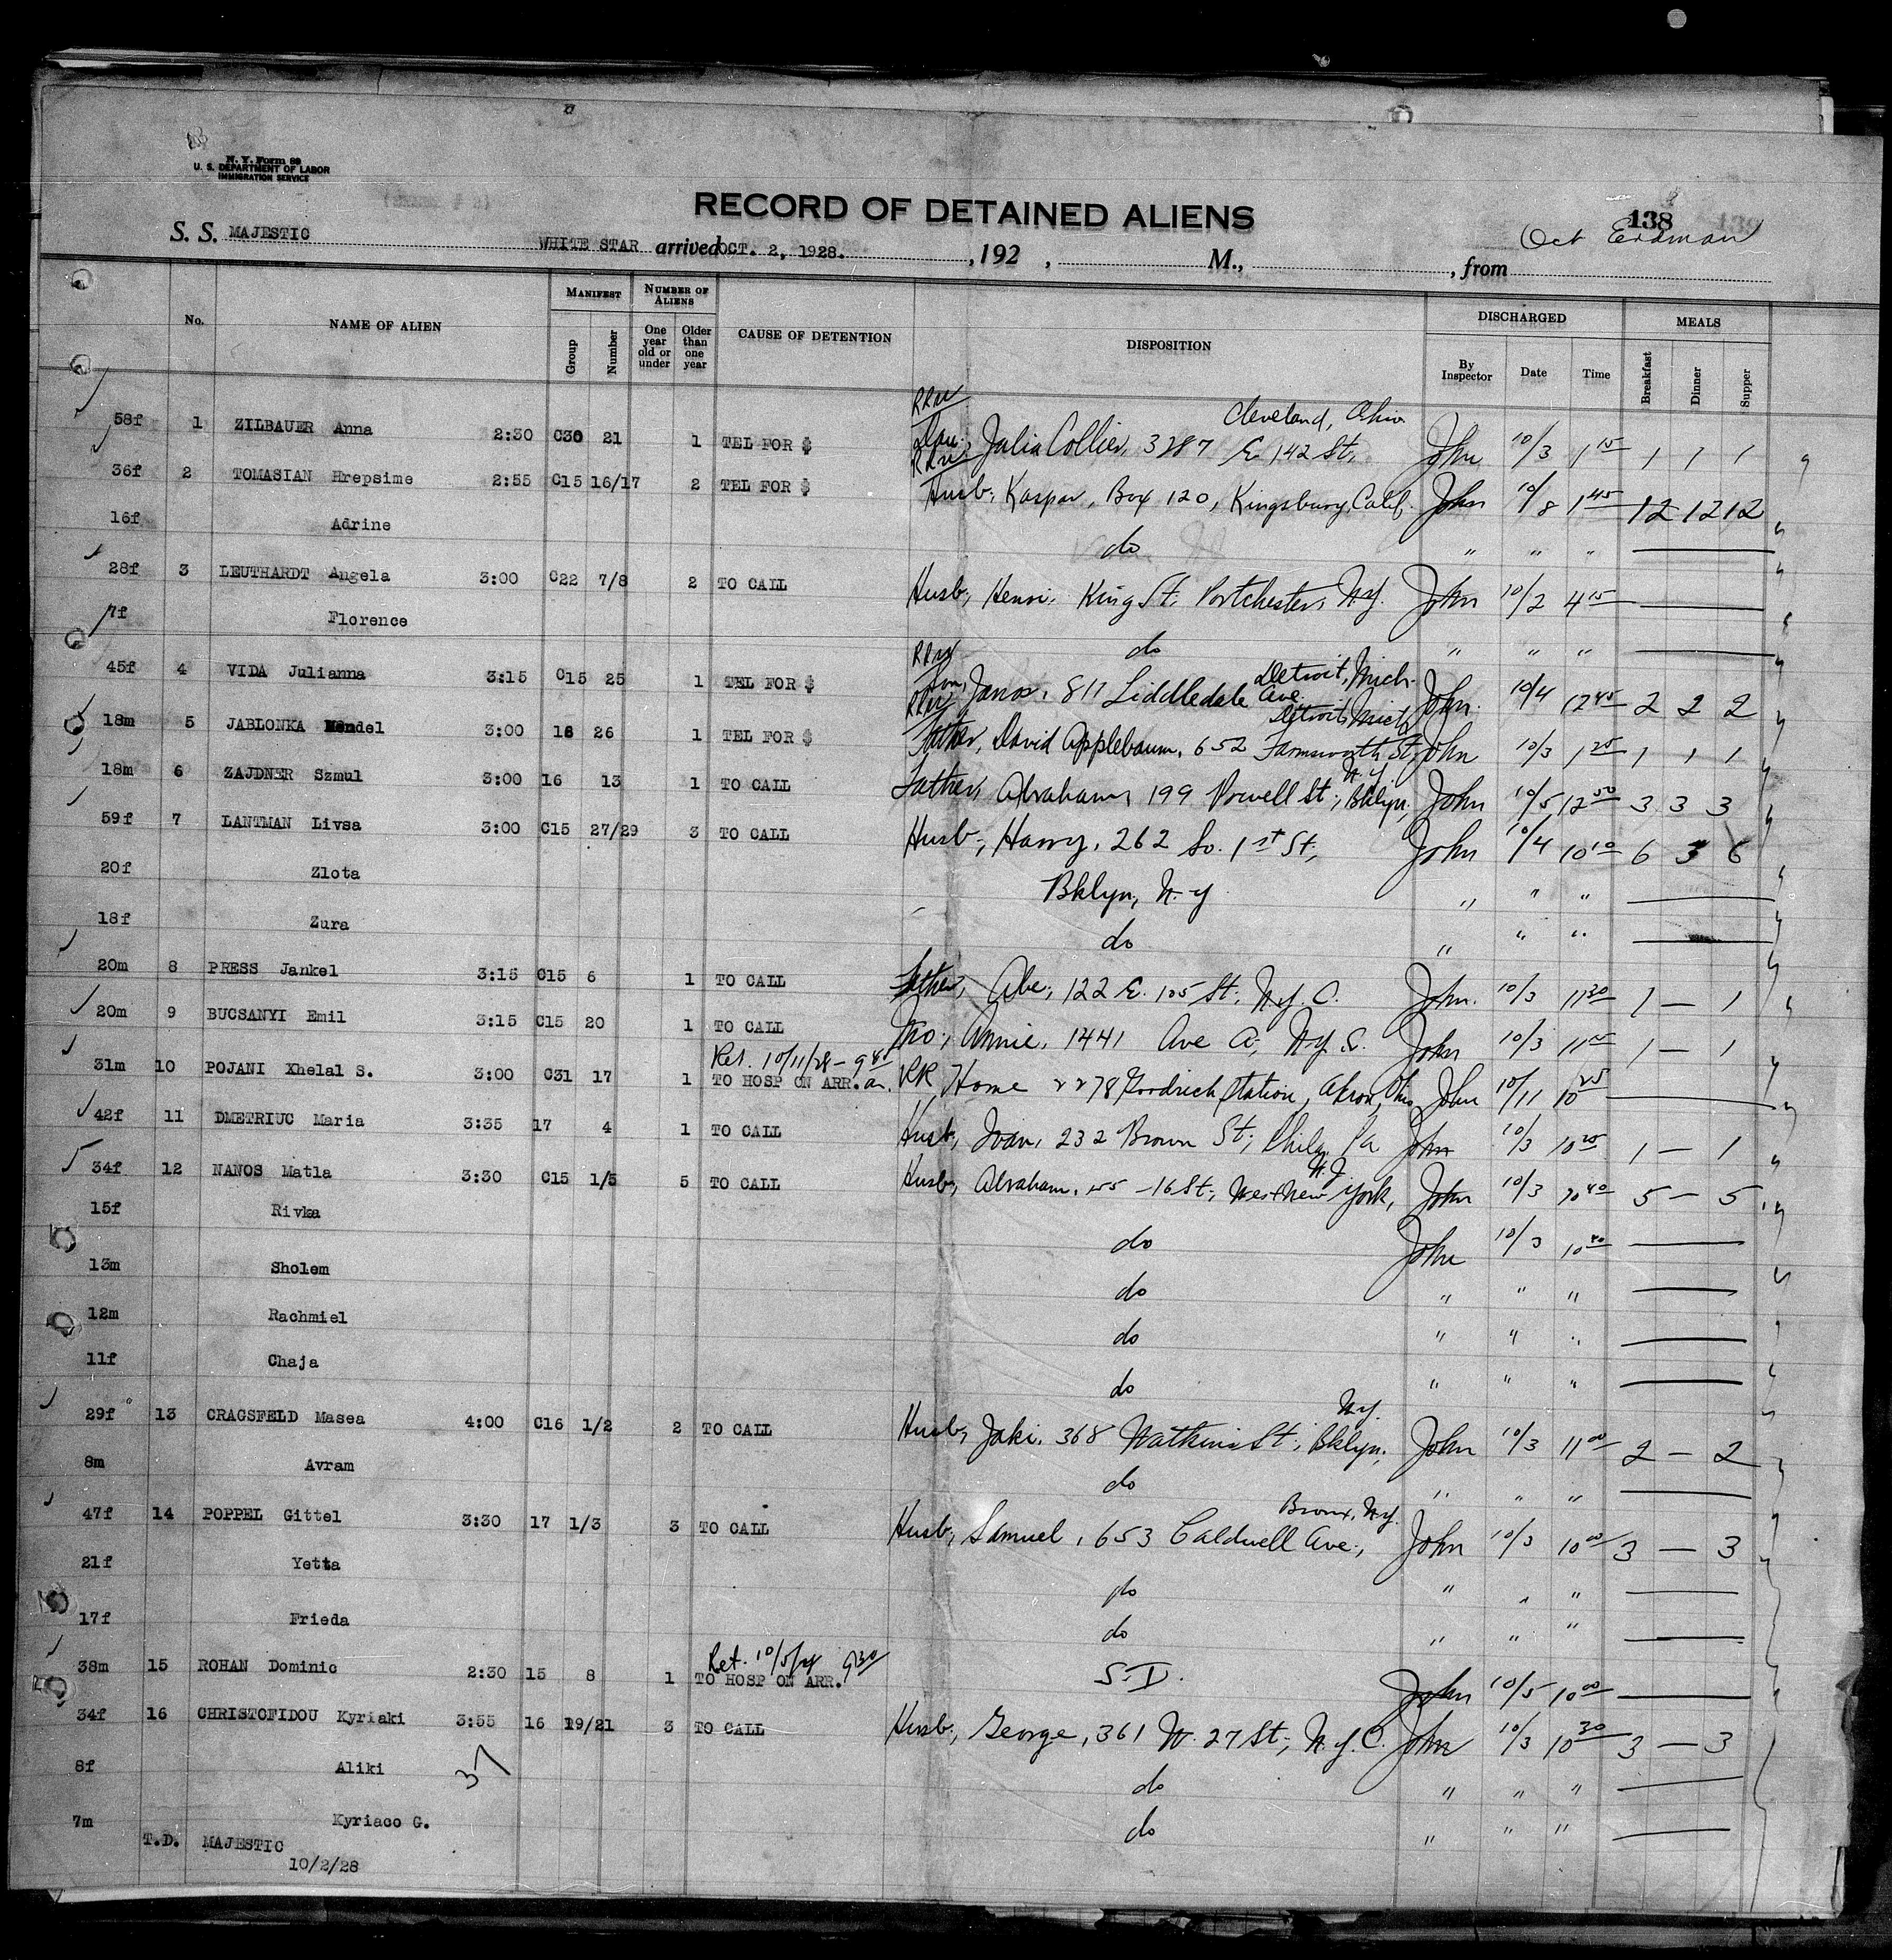 N. Y. Form 89
U. S. DEPARTMENT OF LABOR
IMMIGRATION SERVICE
RECORD OF DETAINED ALIENS
138
S. S. MAJESTIC WHITE STAR arrived OCT. 2, 1928. , 192 , M., , from Oct Erdman
No. NAME OF ALIEN MANIFEST NUMBER OF ALIENS CAUSE OF DETENTION DISPOSITION DISCHARGED MEALS
Group Number One year old or under Older than one year By Inspector Date Time Breakfast Dinner Supper
RRW Cleveland, Ohio
58f 1 ZILBAUER Anna 2:30 C30 21 1 TEL FOR $ Dau. Julia Collier, 3287 E. 142 St, John 10/3 1 15 1 1 1
36f 2 TOMASIAN Hrepsime 2:55 C15 16/17 2 TEL FOR $ Husb; Kaspar, Box 120, Kingsbury, Calif. John 10/8 1 45 12 12 12
16f Adrine do " " "
28f 3 LEUTHARDT Angela 3:00 C22 7/8 2 TO CALL Husb, Henri, King St, Portchester, N.Y. John 10/2 4 15
7f Florence do " " "
Detroit, Mich.
45f 4 VIDA Julianna 3:15 C15 25 1 TEL FOR $ Son, Janos, 811 Liddledale Ave. John. 10/4 12 45 2 2 2
Detroit Mich
18m 5 JABLONKA Mendel 3:00 16 26 1 TEL FOR $ Father, David Applebaum, 652 Farnsworth St, John 10/3 1 25 1 1 1
N.Y.
18m 6 ZAJDNER Szmul 3:00 16 13 1 TO CALL Father, Abraham, 199 Powell St; Bklyn; John 10/5 12 50 3 3 3
59f 7 LANTMAN Livsa 3:00 C15 27/29 3 TO CALL Husb; Harry, 262 So. 1st St, John 10/4 10 10 6 3 6
20f Zlota Bklyn, N.Y " " "
18f Zura do " " "
20m 8 PRESS Jankel 3:15 C15 6 1 TO CALL Father, Abe, 122 E. 105 St; N.Y.C. John. 10/3 11 30 1 — 1
20m 9 BUCSANYI Emil 3:15 C15 20 1 TO CALL Mo; Annie, 1441 Ave A; N.Y.C. John 10/3 11 15 1 — 1
Ret. 10/11/28 - 9 40
31m 10 POJANI Xhelal S. 3:00 C31 17 1 TO HOSP ON ARR. RR Home 2278 Goodrich Station, Akron, Ohio John 10/11 10 25
42f 11 DMETRIUC Maria 3:35 17 4 1 TO CALL Husb, Ivan, 232 Brown St; Phila Pa John 10/3 10 25 1 — 1
N.J.
34f 12 NANOS Matla 3:30 C15 1/5 5 TO CALL Husb, Abraham, 155 - 16 St; West New York, John 10/3 10 40 5 — 5
15f Rivka do John 10/3 10 40
13m Sholem do " " "
12m Rachmiel do " " "
11f Chaja do " " "
N.Y.
29f 13 CRACSFELD Masea 4:00 C16 1/2 2 TO CALL Husb, Jaki, 368 Watkins St; Bklyn; John 10/3 11 00 2 — 2
8m Avram do " " "
Bronx, N.Y.
47f 14 POPPEL Gittel 3:30 17 1/3 3 TO CALL Husb, Samuel, 653 Caldwell Ave; John 10/3 10 00 3 — 3
21f Yetta do " " "
17f Frieda do " " "
Ret. 10/5/28 9 30
38m 15 ROHAN Dominic 2:30 15 8 1 TO HOSP ON ARR. S.I. John 10/5 10 00
34f 16 CHRISTOFIDOU Kyriaki 3:55 16 19/21 3 TO CALL Husb; George, 361 W. 27 St; N.Y.C. John 10/3 10 30 3 — 3
8f Aliki 37 do " " "
7m Kyriaco G. do " " "
T.D. MAJESTIC
10/2/28